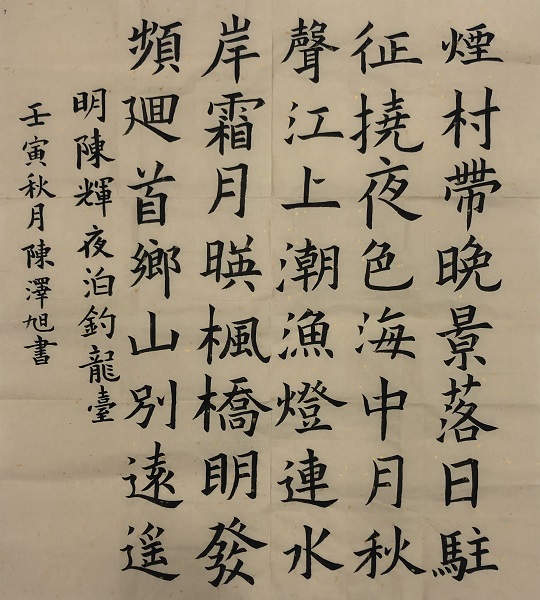 煙村帶晚景落日駐
征撓夜色海中月秋
聲江上潮漁燈連水
岸霜月暎楓橋明發
頻廻首鄉山別遠遥
明陳輝夜泊釣龍臺
壬寅秋月陳澤旭書